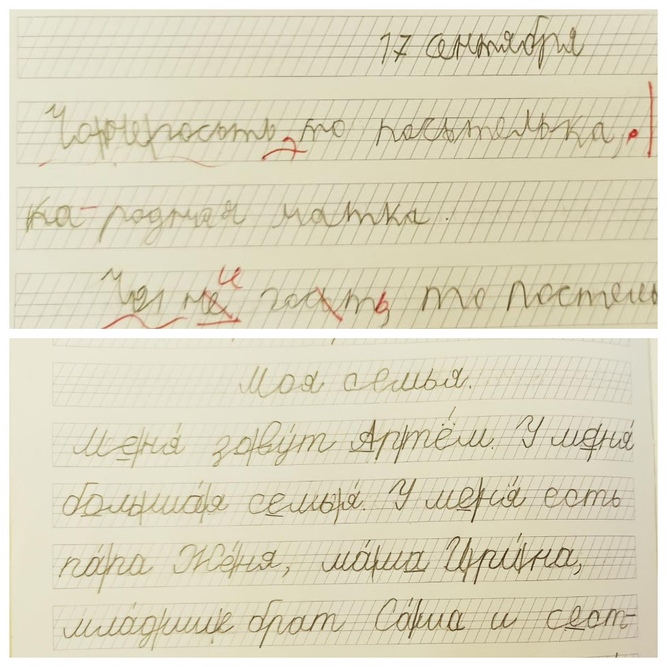 17 сентября
то посьтелька,
ка-родная матка.
то постель
Моя семья.
Меня зовут Артём. У меня
большая семья. У меня есть
папа Женя, мама Ирина,
брат Саша и сест-